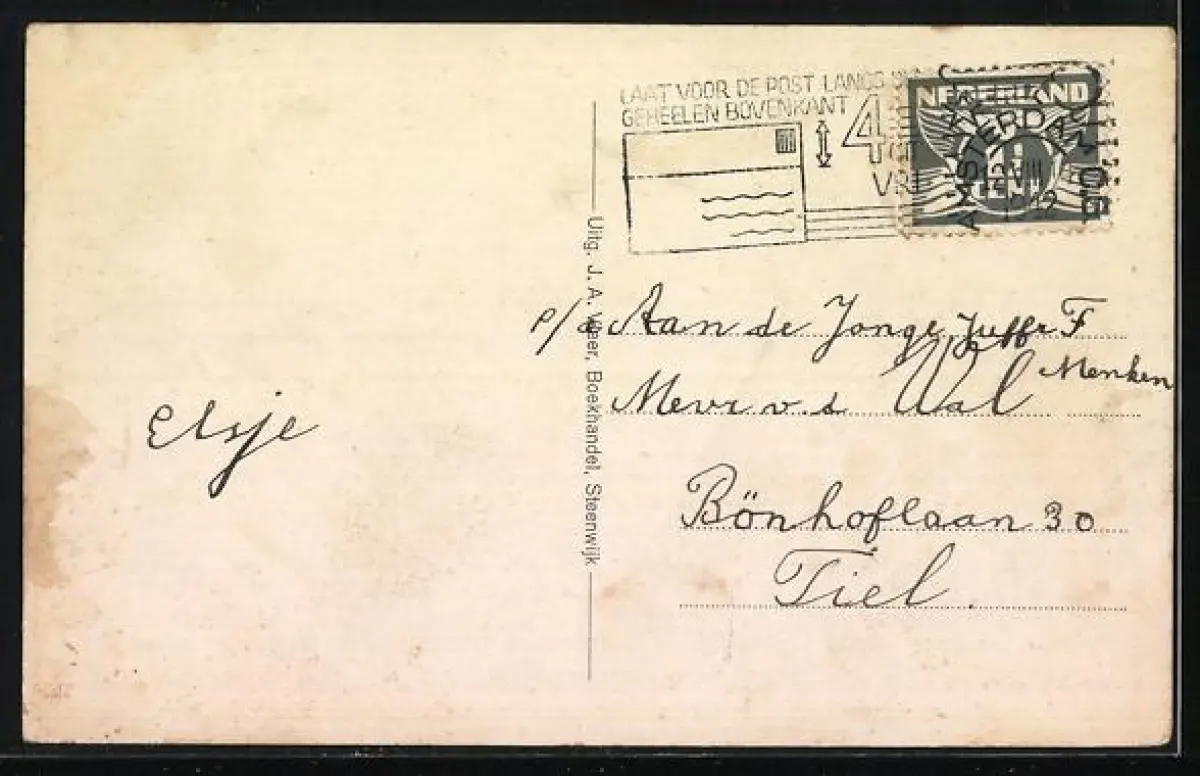 LAAT VOOR DE POST LANGS
GEHEELEN BOVENKANT
4
NEDERLAND
AMSTERDAM
VIII
1942
p/a Aan de Jonge Juffr F
Menken
Mevr v.d Wal
Bönhoflaan 30
Tiel.
Elsje
Uitg. J. A. Weer, Boekhandel, Steenwijk